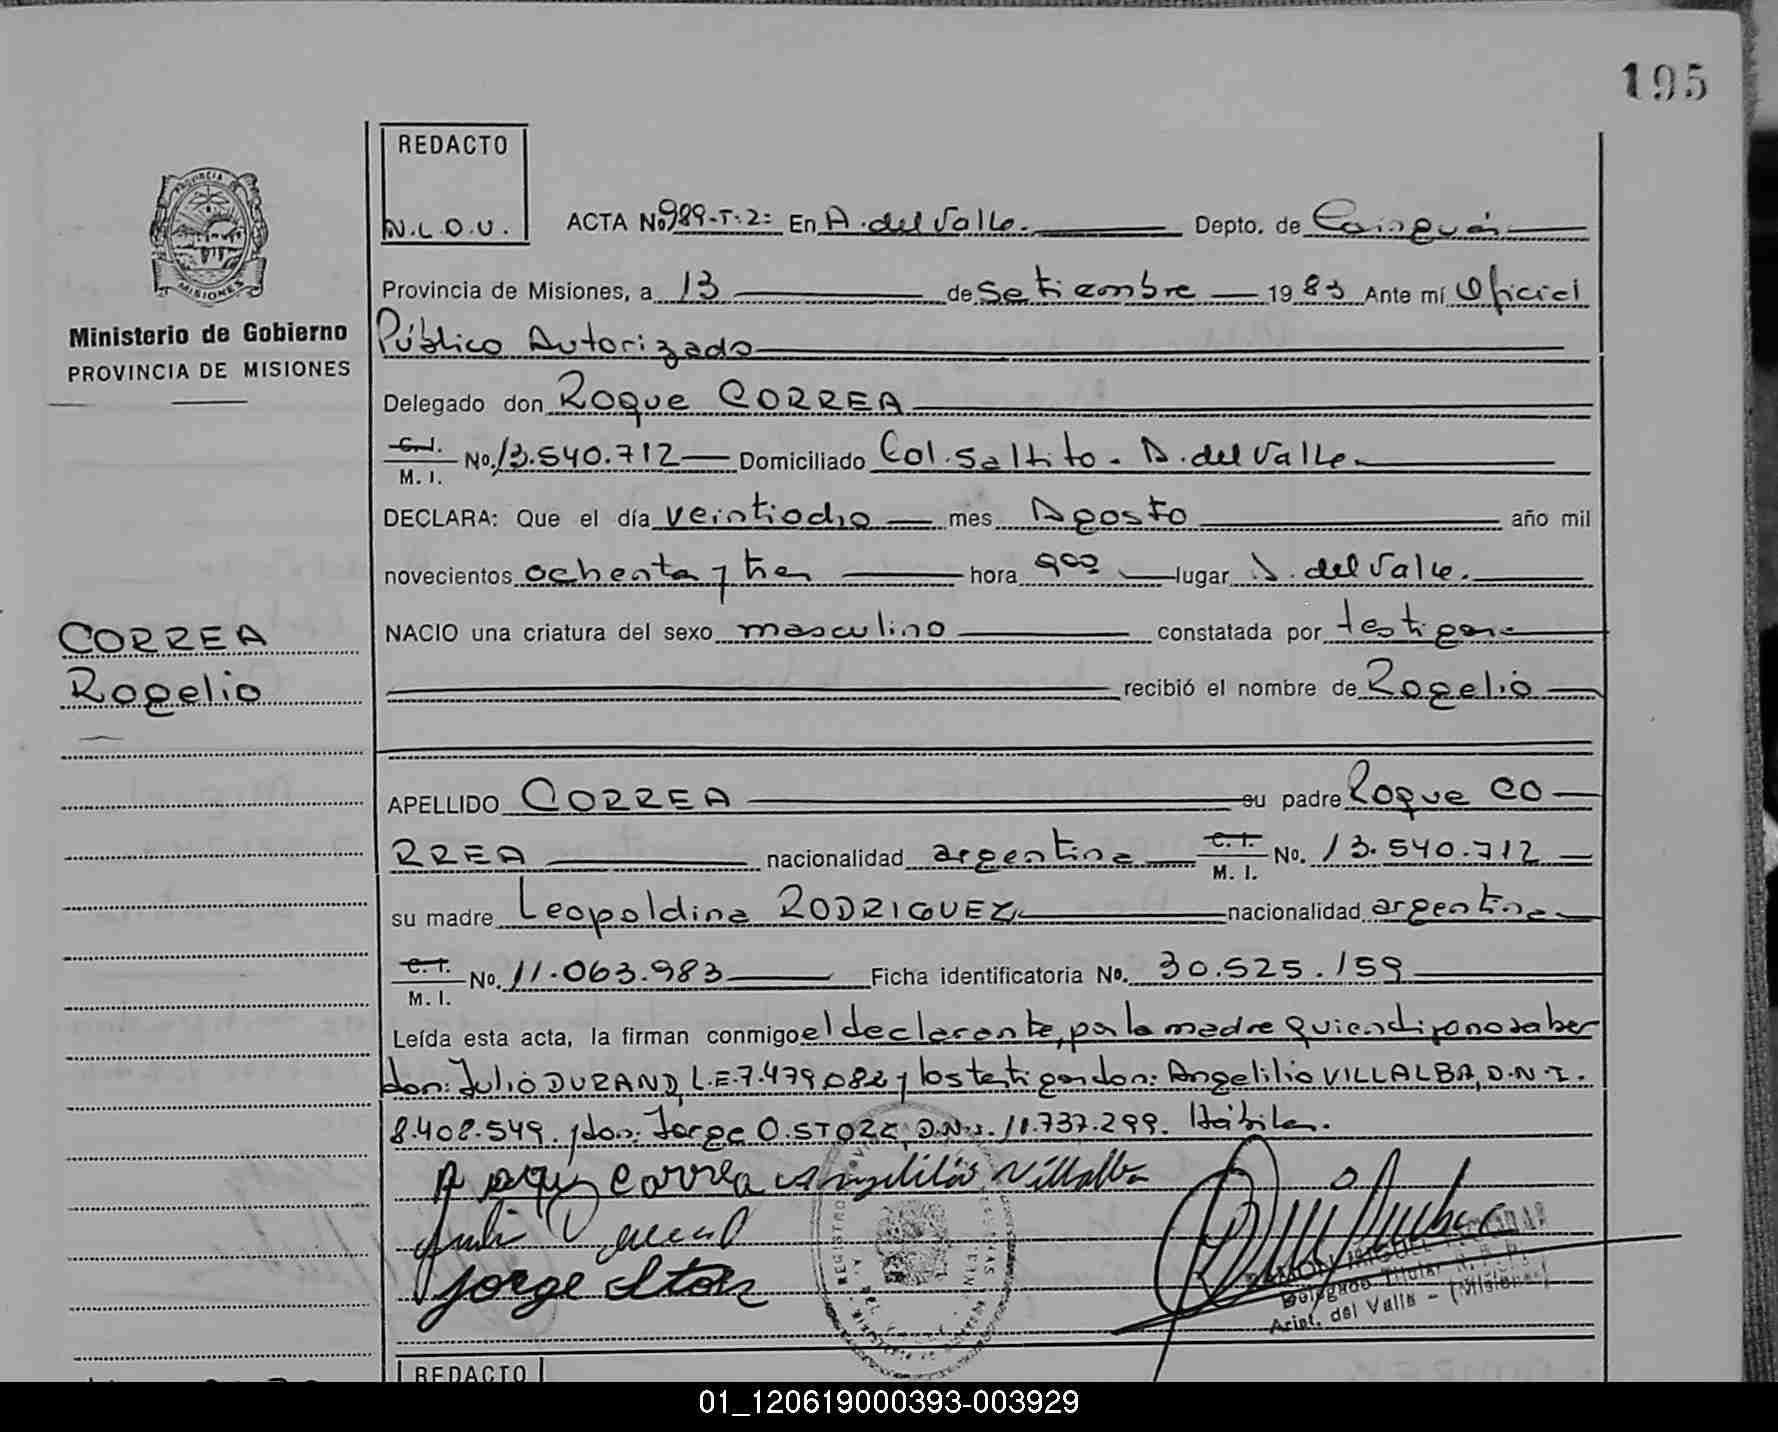 195
REDACTO
N.L.O.U.
ACTA No 989-T:2: En A. del Valle. Depto. de Cainguás
PROVINCIA DE
MISIONES
Provincia de Misiones, a 13 de Setiembre 1983 Ante mí Oficial
Ministerio de Gobierno
PROVINCIA DE MISIONES
Público Autorizado
Delegado don Roque CORREA
C.I. M. I. No. 13.540.712 Domiciliado Col. Saltito. A. del Valle.
DECLARA: Que el día veintiocho mes Agosto año mil
novecientos ochenta y tres hora 900 lugar A. del Valle.
NACIO una criatura del sexo masculino constatada por testigos
CORREA
Rogelio
recibió el nombre de Rogelio
APELLIDO CORREA su padre Roque CO
RREA nacionalidad argentina C. I. M. I. No. 13.540.712
su madre Leopoldina RODRIGUEZ nacionalidad argentina
C. I. M. I. No. 11.063.983 Ficha identificatoria No. 30.525.159
Leída esta acta, la firman conmigo el declarante, por la madre quien dijo no saber
don: Julio DURAND, L.E. 7.479.082 y los testigos don: Angelilio VILLALBA, D.N.I.
8.408.549. y don: Jorge O. STORZ, D.N.I. 11.737.299. Hábiles.
Correa Angelilio Villalba
Jorge Storz
Delegado Titular
Arist. del Valle - (Misiones)
REDACTO
01_120619000393-003929